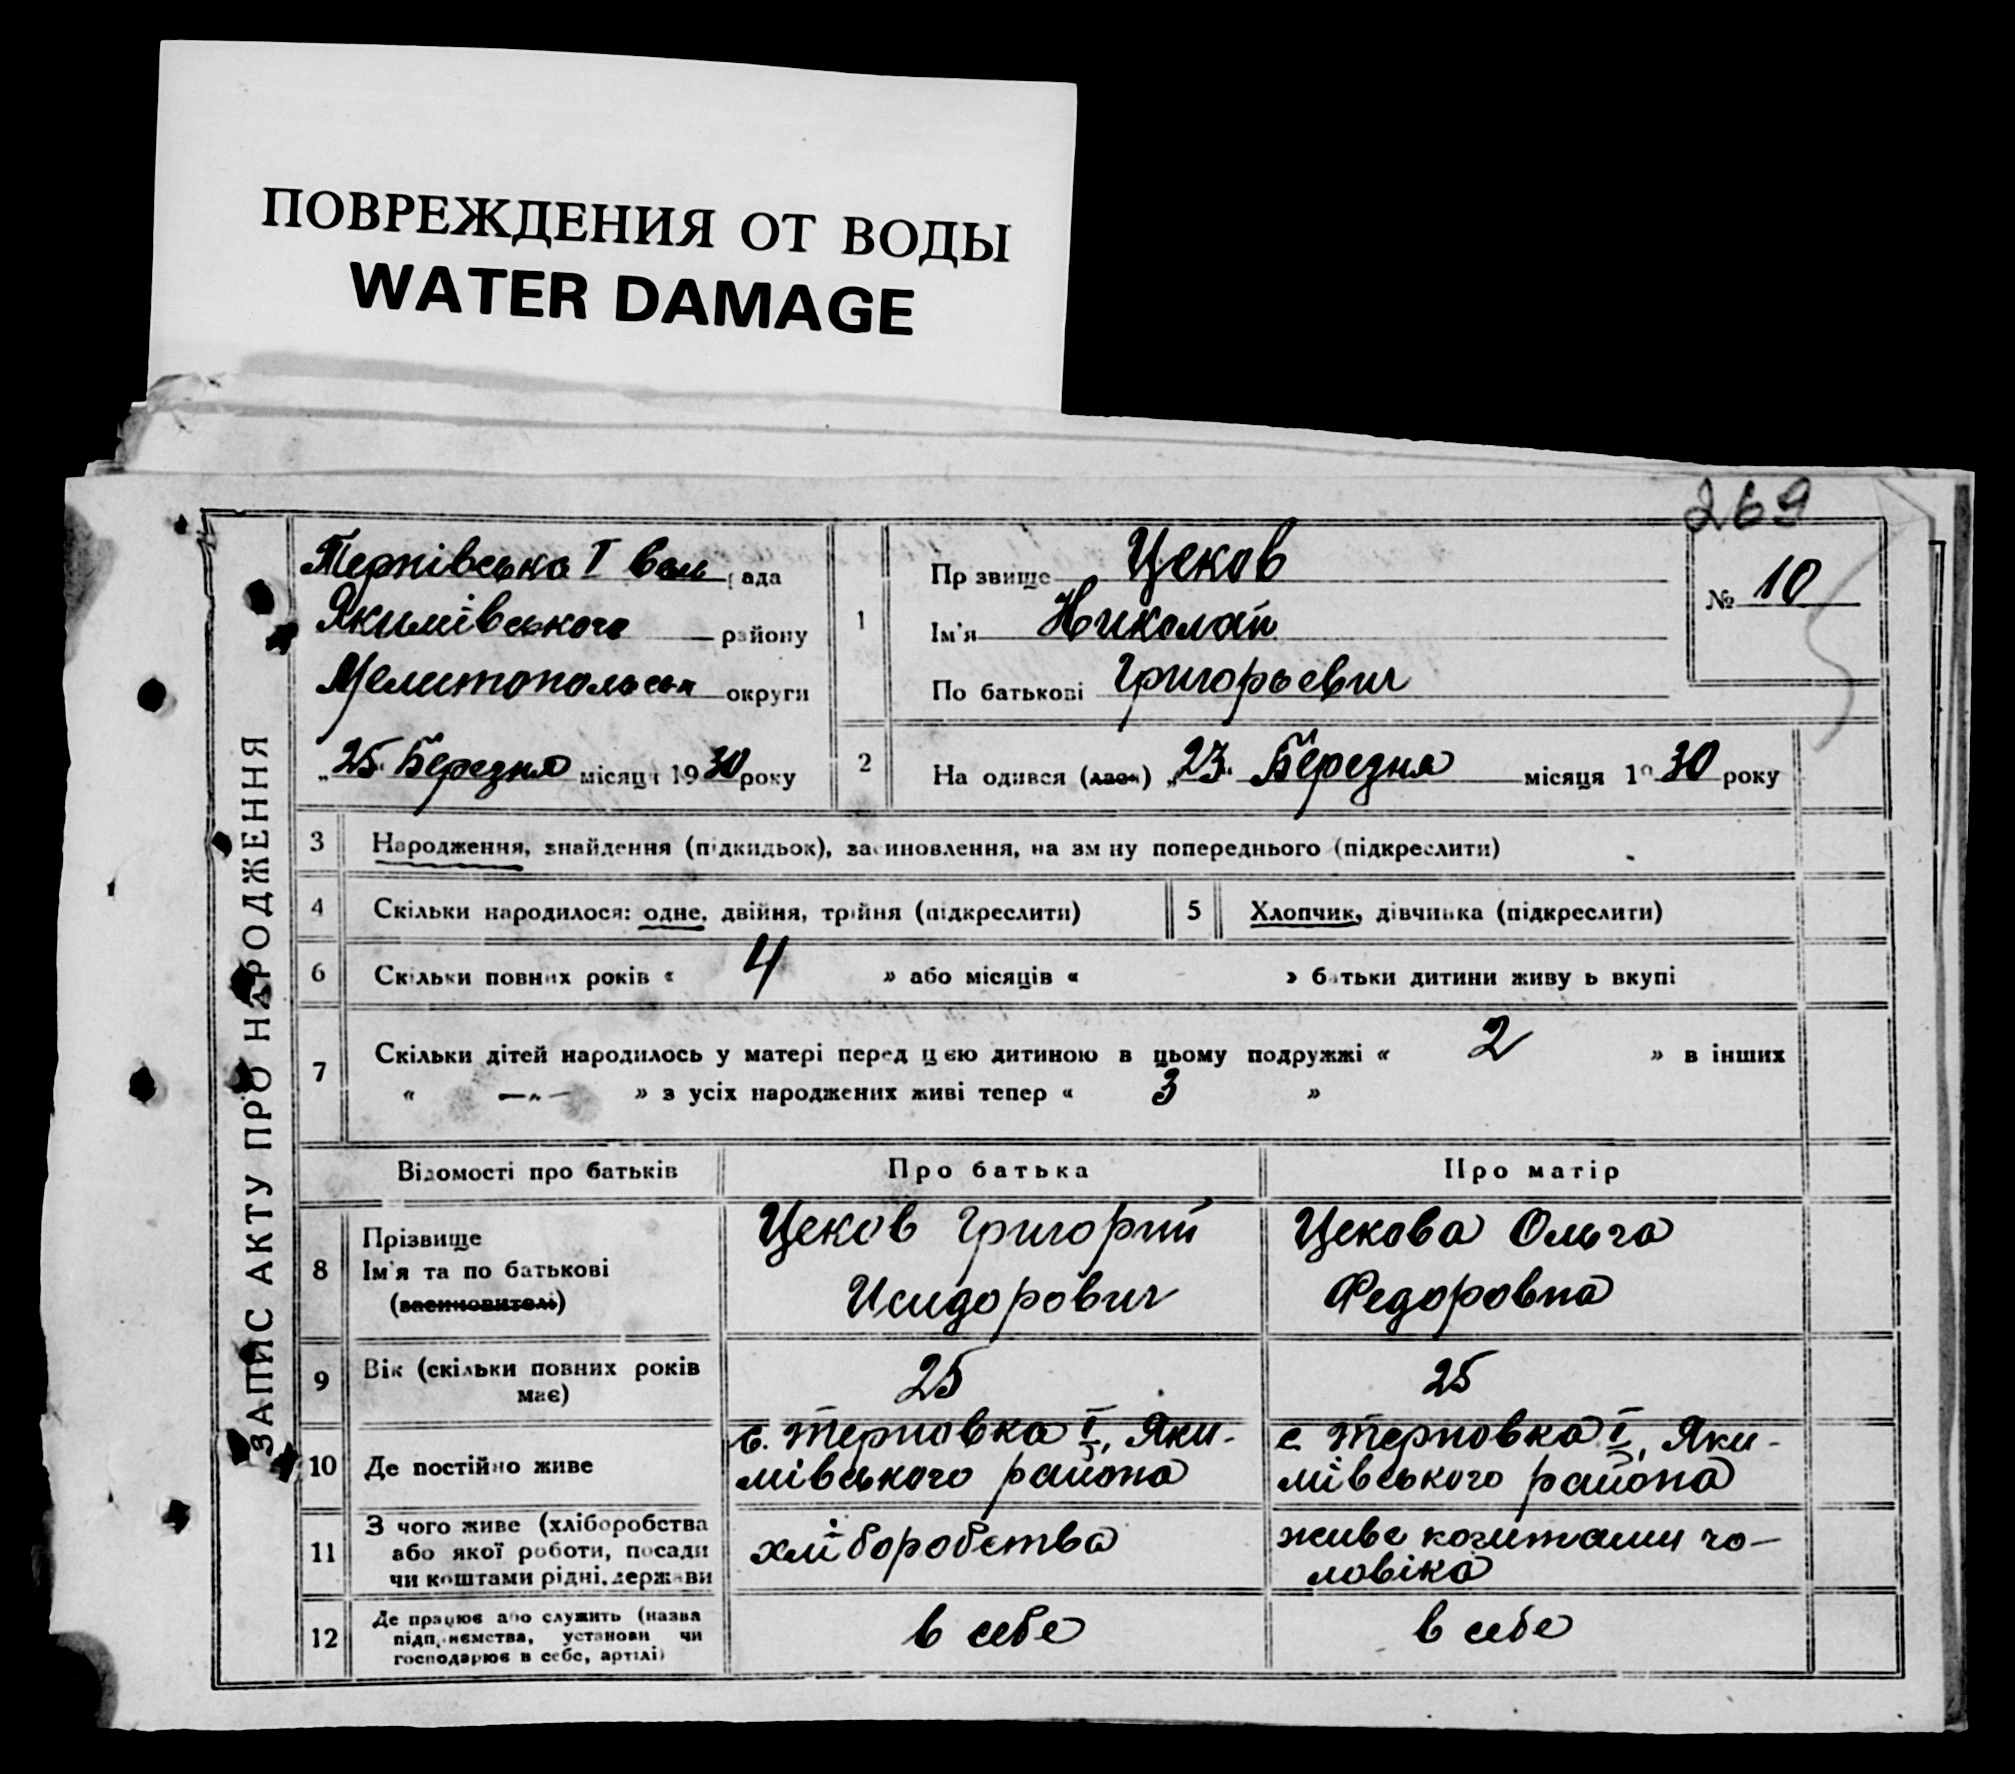 ПОВРЕЖДЕНИЯ ОТ ВОДЫ
WATER DAMAGE
269
ЗАПИС АКТУ ПРО НАРОДЖЕННЯ
Тернівська I рада
Якимівського району
Мелитопольськ округи
„25“ Березня місяця 1930 року
1
Прізвище Цеков
Ім'я Николай
По батькові Григорьевич
№ 10
2 На одився (лась) „23“ Березня місяця 1930 року
3 Народження, знайдення (підкидьок), засиновлення, на зміну попереднього (підкреслити)
4 Скільки народилося: одне, двійня, трійня (підкреслити) 5 Хлопчик, дівчинка (підкреслити)
6 Скільки повних років « 4 » або місяців « » батьки дитини живу ь вкупі
7 Скільки дітей народилось у матері перед цією дитиною в цьому подружжі « 2 » в інших
« —„— » з усіх народжених живі тепер « 3 »
Відомості про батьків Про батька Про матір
8 Прізвище
Ім'я та по батькові
(васиновитель)
Цеков Григорий
Исидорович
Цекова Ольга
Федоровна
9 Вік (скільки повних років
має)
25
25
10 Де постійно живе
с. Терновка I, Яки-
мівського района
с. Терновка I, Яки-
мівського района
11 З чого живе (хліборобства
або якої роботи, посади
чи коштами рідні, держави
хліборобства
живе коштами чо-
ловіка
12 Де працює або служить (назва
підприємства, установи чи
господарює в себе, артілі)
в себе
в себе